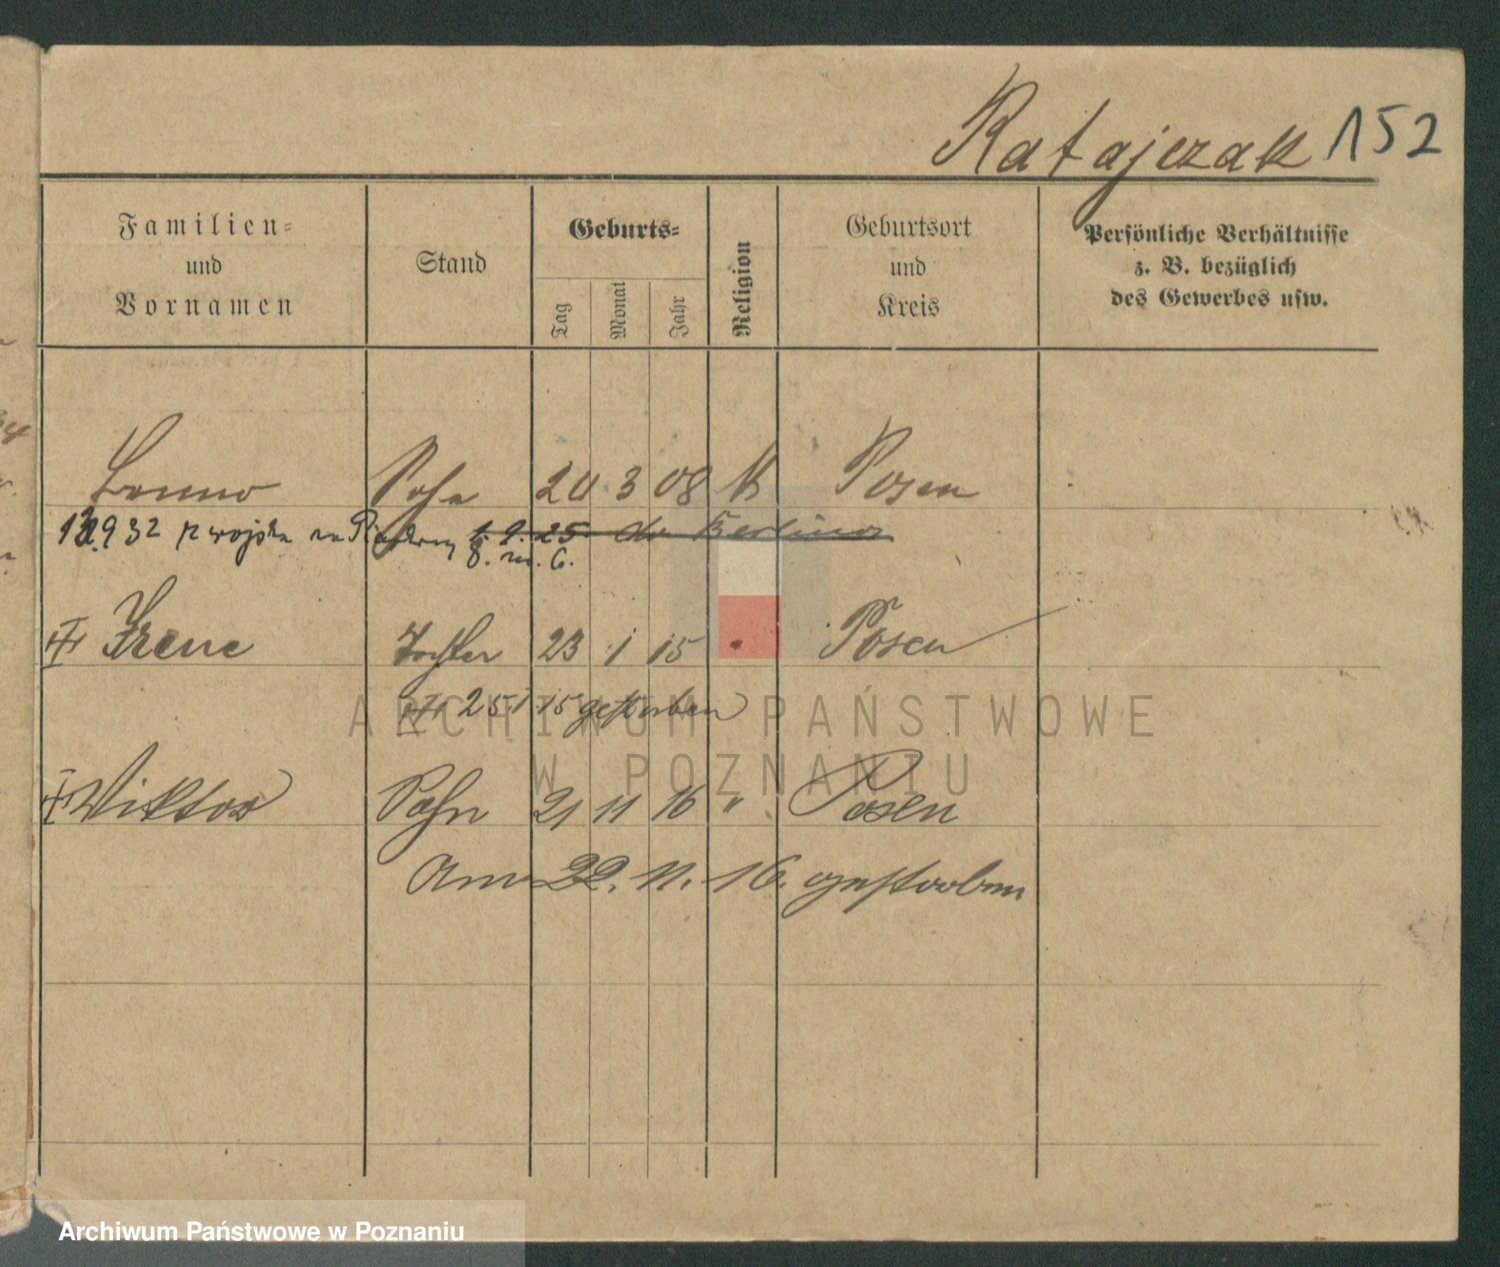 Ratajczak 152
Familien=
und
Vornamen
Stand
Geburts=
Tag
Monat
Jahr
Religion
Geburtsort
und
Kreis
Persönliche Verhältnisse
z. B. bezüglich
des Gewerbes usw.
Sohn 3 08 K Posen
932 z wojska 1. 9. 25. do Berlina
Irene Tochter 23 1 15 " Posen
25 1 15 gestorben
Viktor Sohn 21 11 16 " Posen
Am 22. 11. 16. gestorben
ARCHIWUM PAŃSTWOWE
W POZNANIU
Archiwum Państwowe w Poznaniu